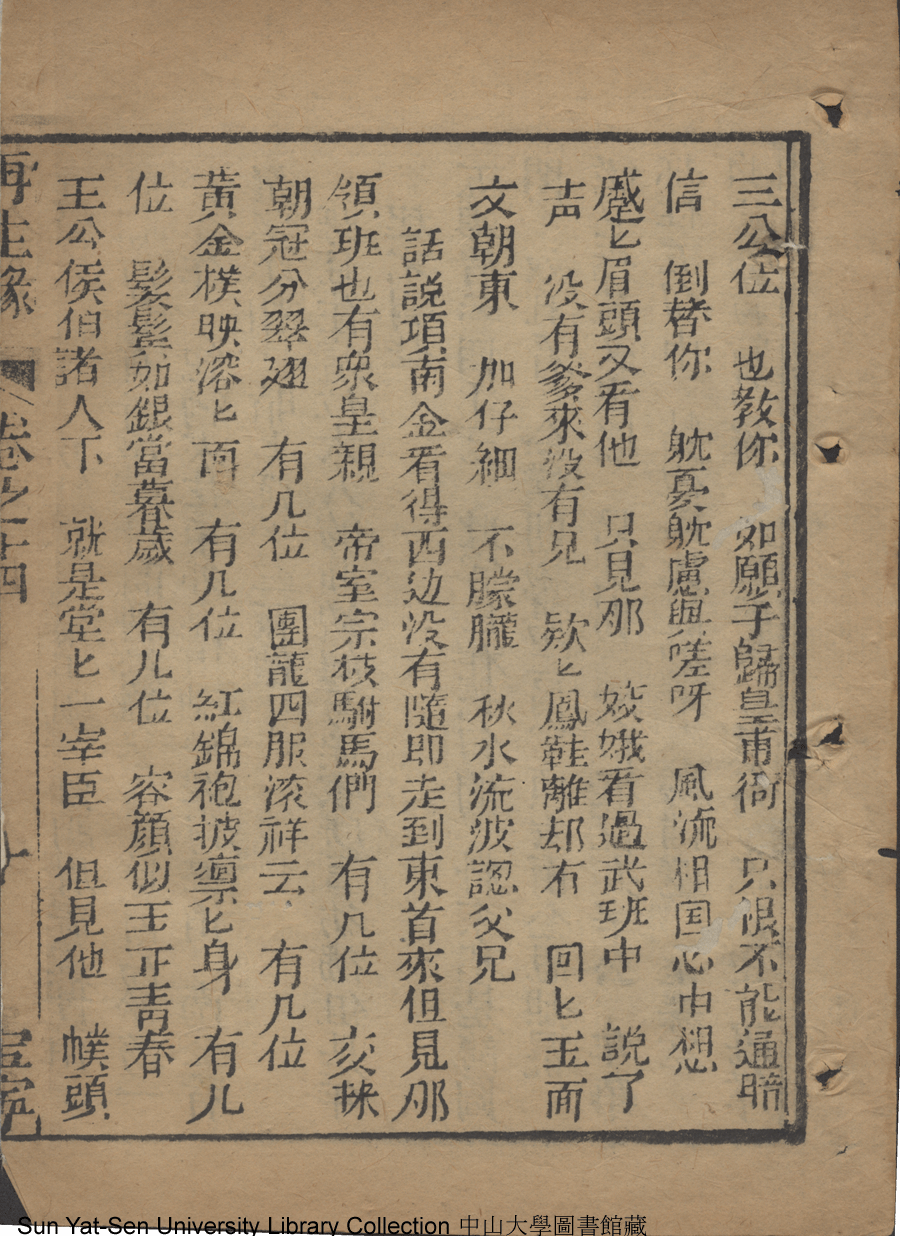 三公位 也教你 如願于歸皇甫衙 只恨不能通暗
信 倒替你 躭憂躭慮與嗟呀 風流相国心中想
蹙匕眉頭又看他 只見那 姣娥看過武班中 說了
声 没有爹來没有兄 欵匕鳳鞋離却右 回匕玉面
文朝東 加仔細 不朦朧 秋水流波認父兄
話說項南金看得西边没有隨即走到東首來但見那
領班也有衆皇親 帝室宗枝駙馬們 有几位
朝冠分翠翅 有几位 團龍四服滚祥云 有几位
黃金樸映溶匕面 有几位 紅錦袍披凛匕身 有几
位 髮鬓如銀當暮歲 有几位 容顔似玉正青春
王公侯伯諸人下 就是堂匕一宰臣 但見他 幞頭
再生緣 卷之十四